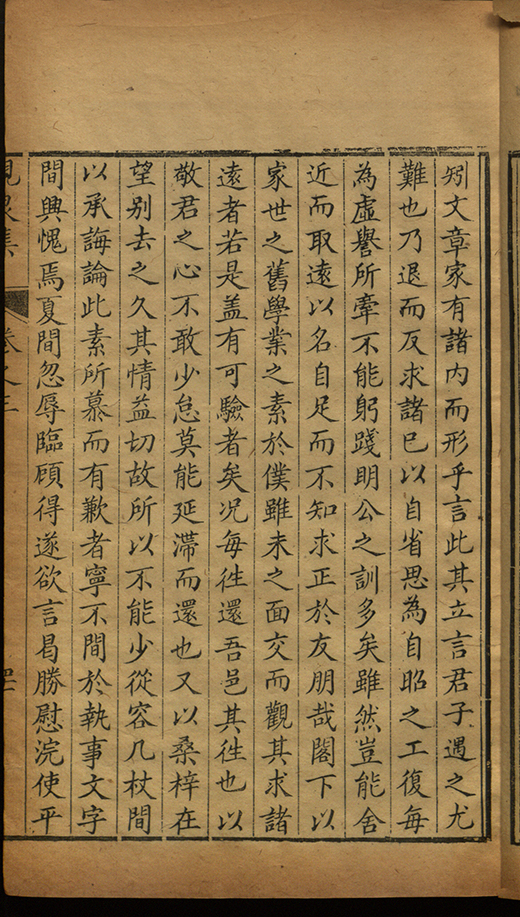 矧文章家有諸内而形乎言此其立言君子遇之尤
難也乃退而反求諸已以自省思為自昭之工復每
為虛譽所牽不能躬踐明公之訓多矣雖然豈能舍
近而取遠以名自足而不知求正於友朋哉閣下以
家世之舊學業之素於僕雖未之面交而觀其求諸
遠者若是盖有可驗者矣况每徃還吾邑其徃也以
敬君之心不敢少怠莫能延滯而還也又以桑梓在
望别去之久其情益切故所以不能少從容几杖間
以承誨論此素所慕而有歉者寧不間於執事文字
間興愧焉夏間忽辱臨顧得遂欲言曷勝慰浣使平
集 卷之三